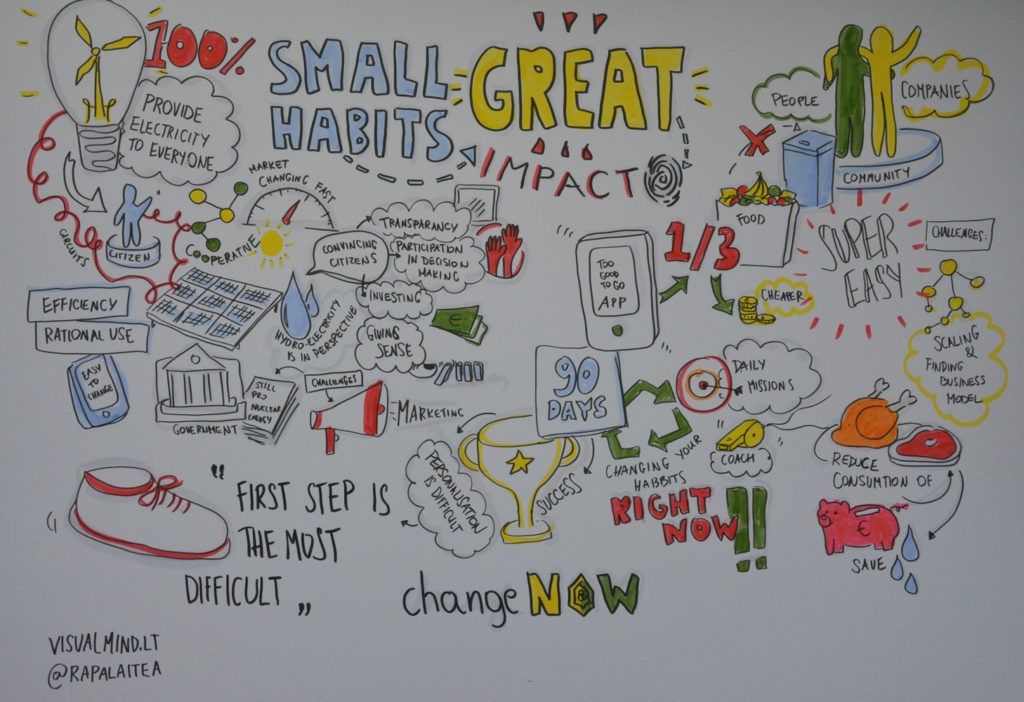 100%
SMALL
HABITS
GREAT
IMPACT
PROVIDE
ELECTRICITY
TO EVERYONE
PEOPLE
COMPANIES
COMMUNITY
CIRCUITS
CITIZEN
COOPERATIVE
MARKET
CHANGING FAST
CONVINCING
CITIZENS
TRANSPARANCY
PARTICIPATION
IN DECISION
MAKING
INVESTING
GIVING
SENSE
€
HYDRO-ELECTRICITY
IS IN PERSPECTIVE
EFFICIENCY
RATIONAL USE
EASY
TO
CHANGE
GOVERNMENT
STILL
PRO
NUCLEAR
ENERGY
CHALLENGES
MARKETING
TOO
GOOD
TO GO
APP
1/3
FOOD
CHEAPER
SUPER
EASY
CHALLENGES:
SCALING
&
FINDING
BUSINESS
MODEL
90
DAYS
DAILY
MISSIONS
COACH
CHANGING YOUR
HABBITS
RIGHT
NOW !!
SUCCESS
PERSONALISATION
IS DIFFICULT
REDUCE
CONSUMTION OF
€
SAVE
"FIRST STEP IS
THE MOST
DIFFICULT„
change NOW
VISUALMIND.LT
@RAPALAITEA